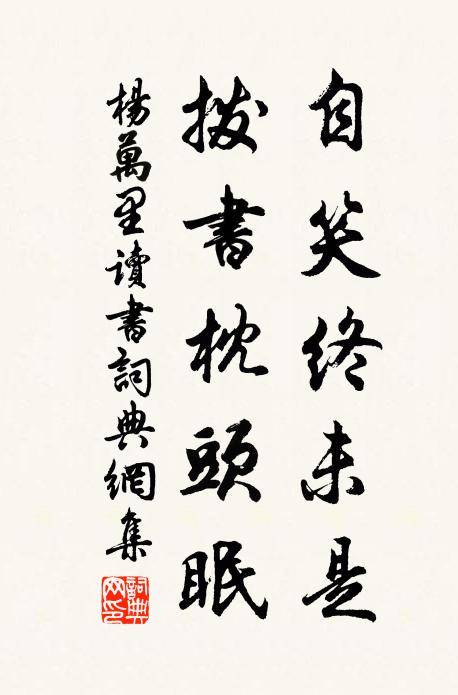 自笑終未是
拨書枕頭眠
楊萬里讀書詞典網集
詞典网印